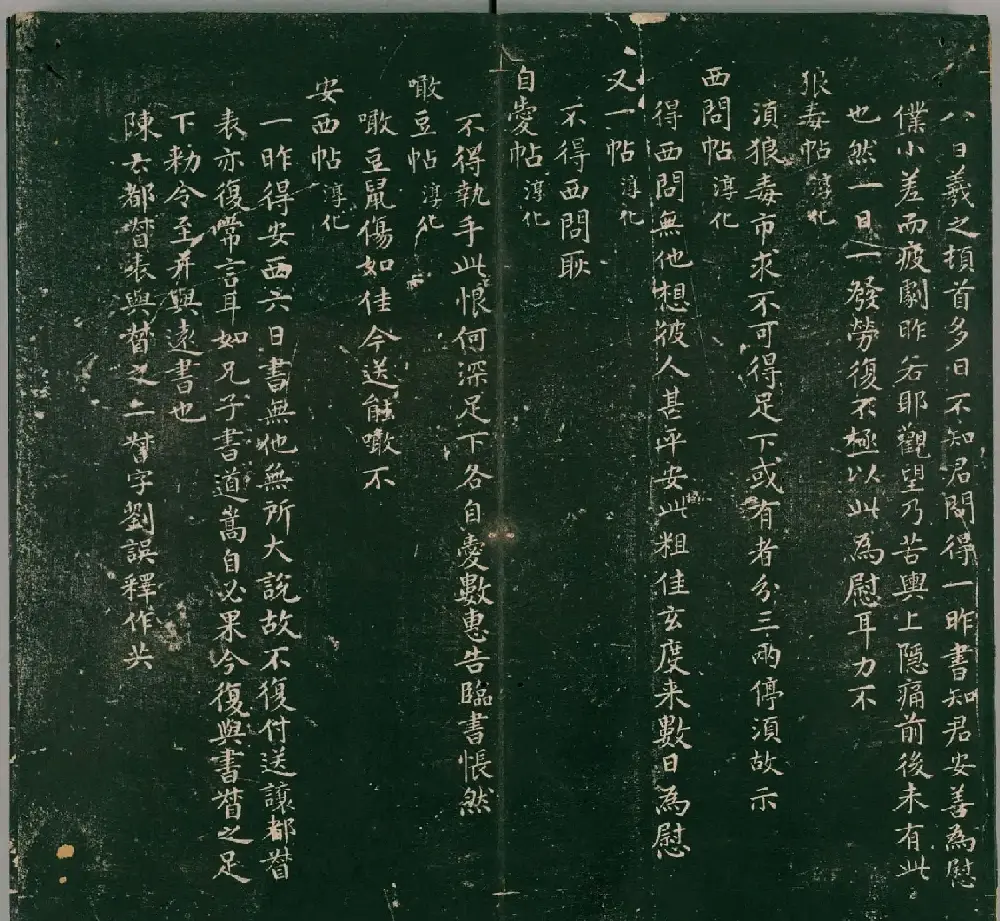 八日羲之頓首多日不知君問得一昨書知君安善為慰
僕小差而疲劇昨若耶觀望乃苦輿上隱痛前後未有此
也然一日一發勞復不極以此為慰耳力不
狼毒帖 淳化
須狼毒市求不可得足下或有者分三兩停須故示
西問帖 淳化
得西問無他想彼人甚平安此粗佳玄度来數日為慰
又一帖 淳化
不得西問耿
自愛帖 淳化
不得執手此恨何深足下各自愛數惠告臨書悵然
噉豆帖 淳化
噉豆鼠傷如佳今送能噉不
安西帖 淳化
一昨得安西六日書無他無所大說故不復付送讓都督
表亦復常言耳如兄子書道嵩自必果今復與書督之足
下勅令至并與遠書也
陳云都督表與督之二督字劉誤釋作共